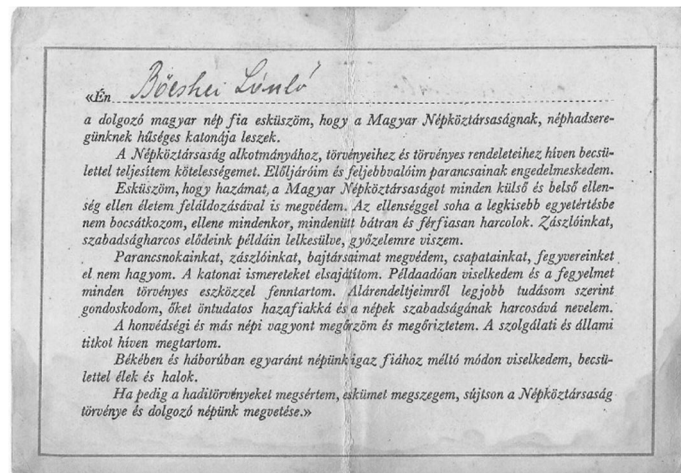 «Én Böcskei László
a dolgozó magyar nép fia esküszöm, hogy a Magyar Népköztársaságnak, néphadsere-
günknek hűséges katonája leszek.
A Népköztársaság alkotmányához, törvényeihez és törvényes rendeleteihez híven becsü-
lettel teljesítem kötelességemet. Előljáróim és feljebbvalóim parancsainak engedelmeskedem.
Esküszöm, hogy hazámat, a Magyar Népköztársaságot minden külső és belső ellen-
ség ellen életem feláldozásával is megvédem. Az ellenséggel soha a legkisebb egyetértésbe
nem bocsátkozom, ellene mindenkor, mindenütt bátran és férfiasan harcolok. Zászlóinkat,
szabadságharcos elődeink példáin lelkesülve, győzelemre viszem.
Parancsnokainkat, zászlóinkat, bajtársaimat megvédem, csapatainkat, fegyvereinket
el nem hagyom. A katonai ismereteket elsajátítom. Példaadóan viselkedem és a fegyelmet
minden törvényes eszközzel fenntartom. Alárendeltjeimről legjobb tudásom szerint
gondoskodom, őket öntudatos hazafiakká és a népek szabadságának harcosává nevelem.
A honvédségi és más népi vagyont megőrzöm és megőriztetem. A szolgálati és állami
titkot híven megtartom.
Békében és háborúban egyaránt népünk igaz fiához méltó módon viselkedem, becsü-
lettel élek és halok.
Ha pedig a haditörvényeket megsértem, eskümet megszegem, sújtson a Népköztársaság
törvénye és dolgozó népünk megvetése.»